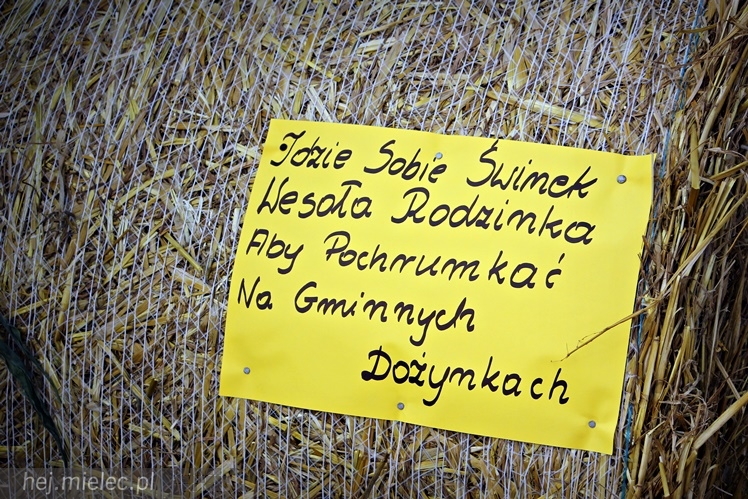 Idzie Sobie Świnek
Wesoła Rodzinka
Aby Pochrumkać
Na Gminnych
Dożynkach
hej.mielec.pl